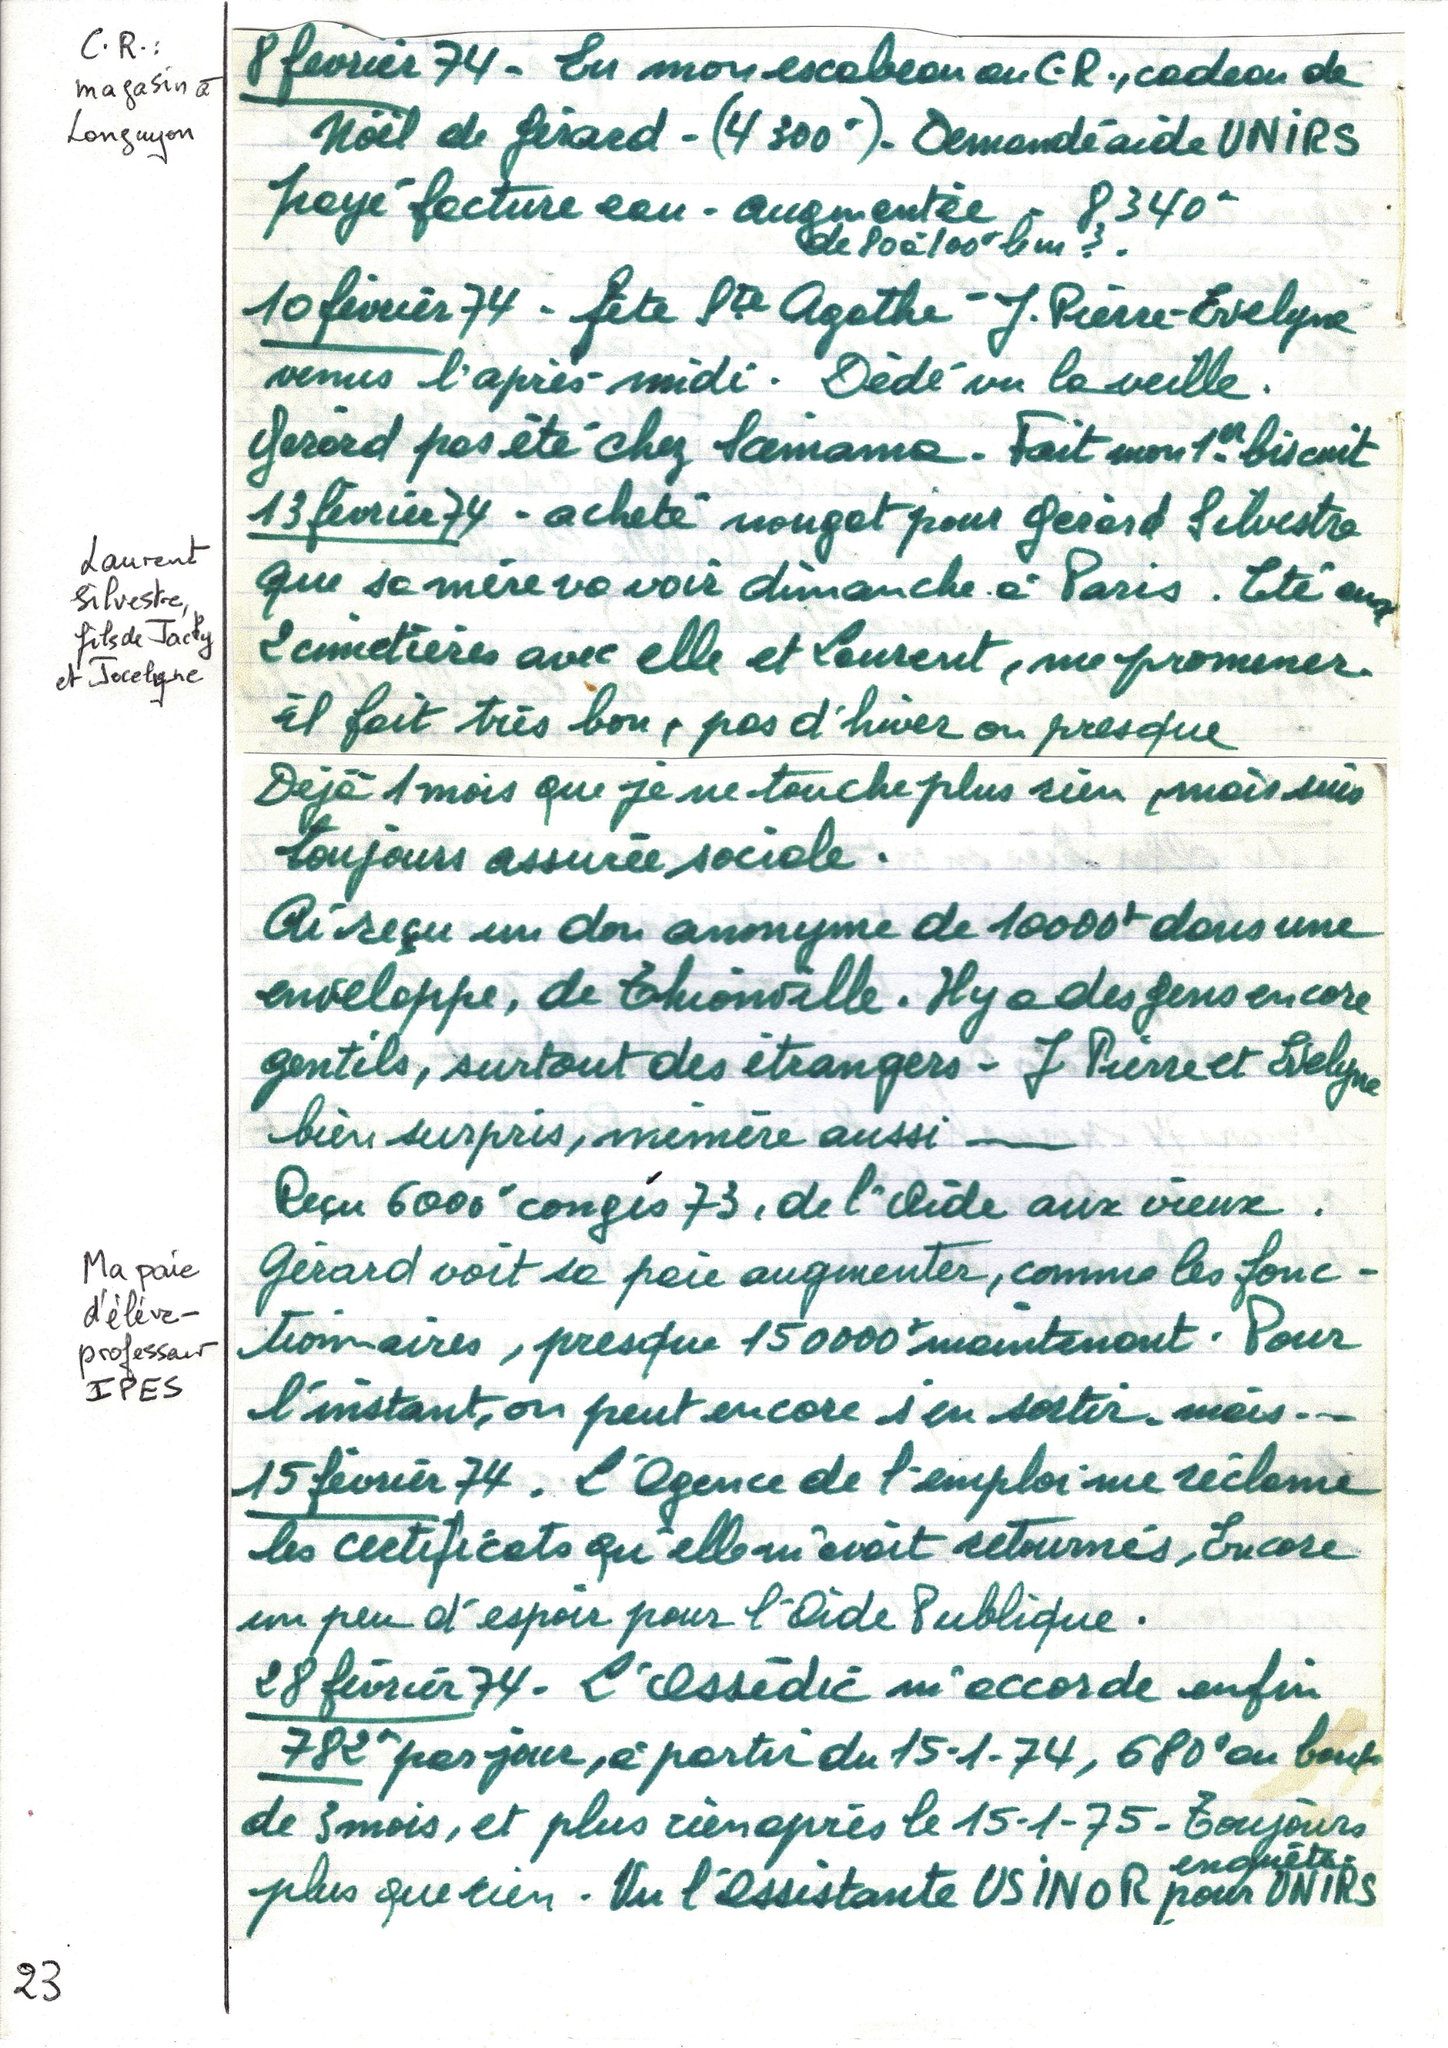 C.R.:
magasin à
Longuyon
8 février 74 - Eu mon escabeau au C.R., cadeau de
Noël de Gérard - (4300F). Demandé aide UNIRS
payé facture eau - augmentée - 8340F
de 80 à 100F le m3.
10 février 74 - fête Ste Agathe - J. Pierre-Evelyne
venus l'après-midi. Dédé vu la veille.
Gérard pas été chez Saimama. Fait mon 1er biscuit
13 février 74 - acheté nougat pour Gérard Silvestre
Laurent
Silvestre,
fils de Jacky
et Jocelyne
que sa mère va voir dimanche à Paris. Été aux
2 cimetières avec elle et Laurent, me promener.
il fait très bon, pas d'hiver ou presque
Déjà 1 mois que je ne touche plus rien, mais suis
toujours assurée sociale.
Ai reçu un don anonyme de 10000F dans une
enveloppe, de Thionville. Il y a des gens encore
gentils, surtout des étrangers - J Pierre et Evelyne
bien surpris, mémère aussi —
Reçu 6000F congés 73, de l'Aide aux vieux.
Ma paie
d'élève-
professeur
IPES
Gérard voit sa paie augmenter, comme les fonc-
tionnaires, presque 150000F maintenant. Pour
l'instant, on peut encore s'en sortir. mais...
15 février 74. L'Agence de l'emploi me réclame
les certificats qu'elle m'avait retournés, Encore
un peu d'espoir pour l'Aide Publique.
28 février 74 - L'Assédic m'accorde enfin
782F par jour, à partir du 15-1-74, 680F au bout
de 3 mois, et plus rien après le 15-1-75 - Toujours
plus que rien. Vu l'assistante USINOR enquête pour UNIRS
23